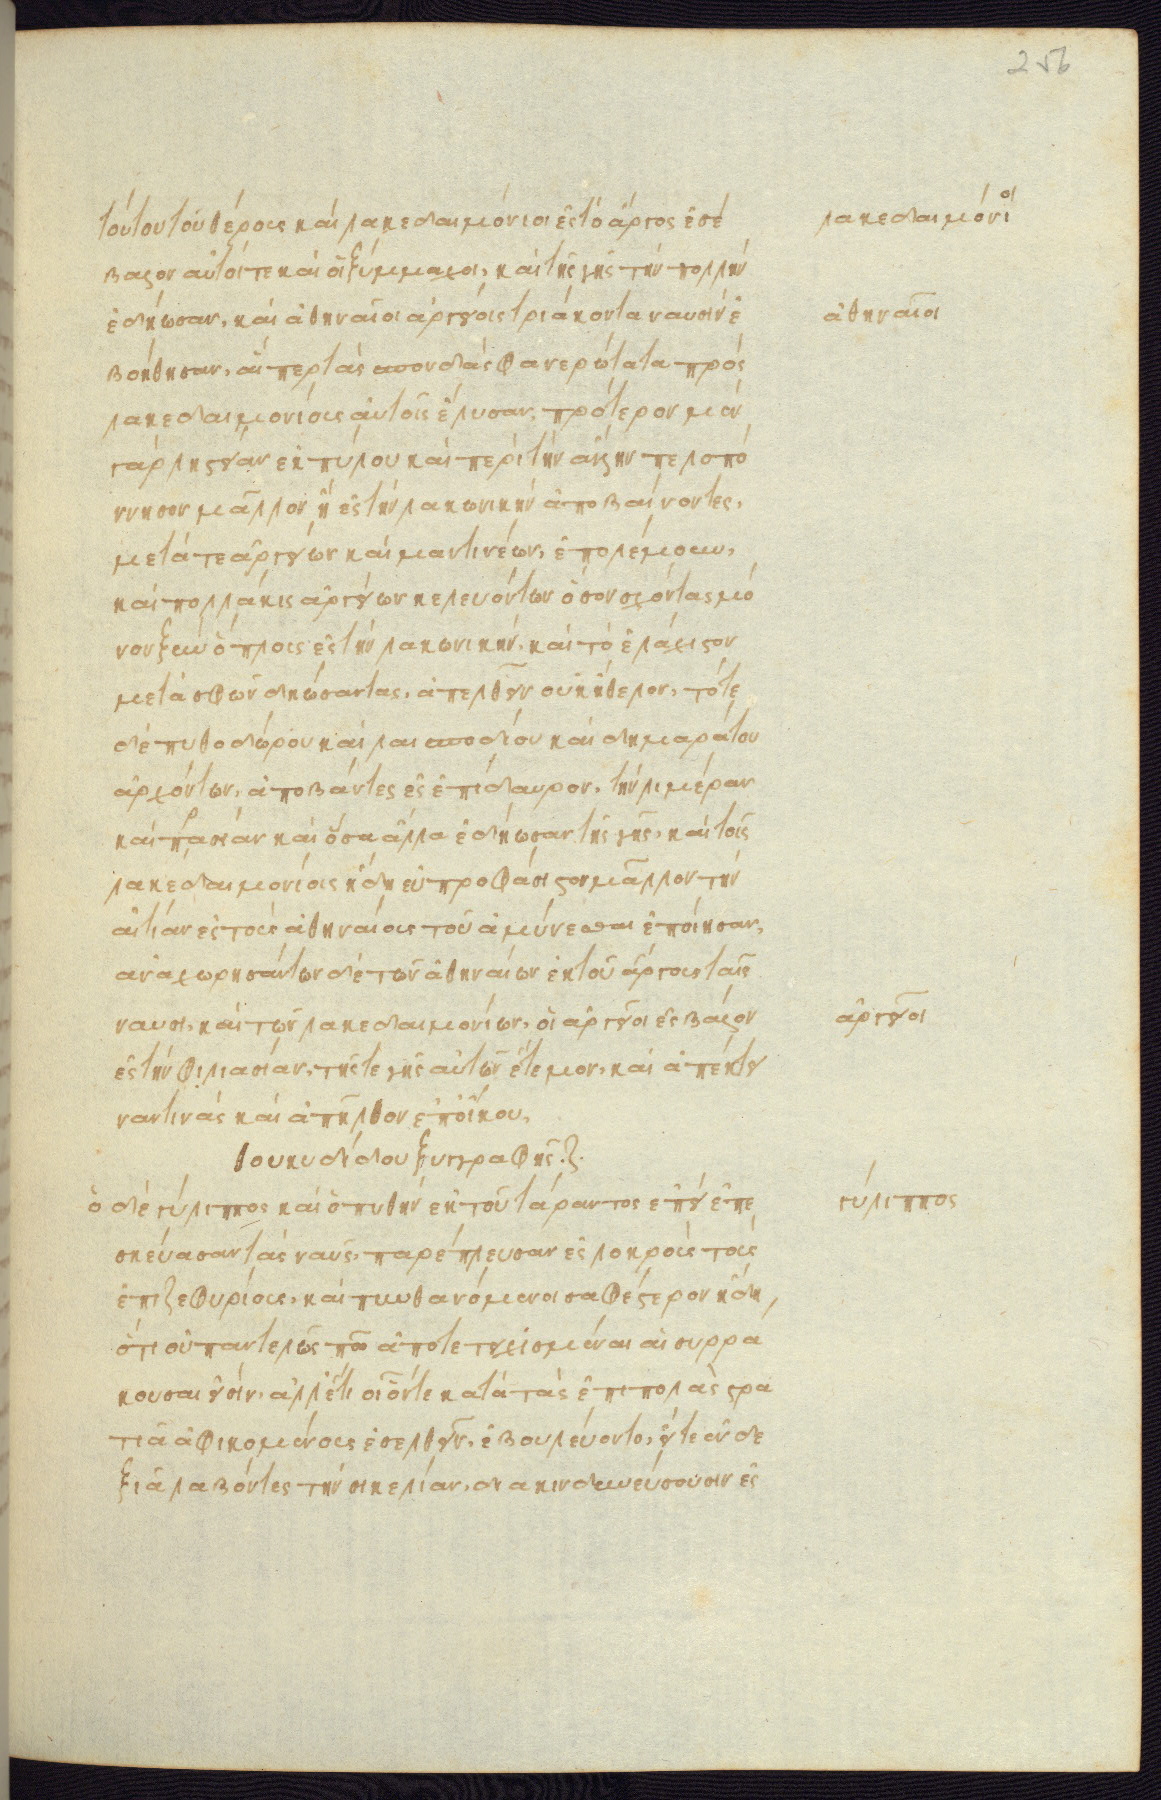 256
τούτου τοῦ θέρους καὶ λακεδαιμόνιοι ἐς τὸ ἄργος ἐσέ
βαλον αὐτοί τε καὶ οἱ ξύμμαχοι, καὶ τῆς γῆς τὴν πολλὴν
ἐδήωσαν, καὶ ἀθηναῖοι ἀργείοις τριάκοντα ναυσὶν ἐ
βοήθησαν, αἵπερ τὰς σπονδὰς φανερώτατα πρὸς
λακεδαιμονίους αὐτοῖς ἔλυσαν, πρότερον μὲν
γὰρ λῃστείαν ἐκ πύλου καὶ περὶ τὴν ἄλλην πελοπό
ννησον μᾶλλον ἢ ἐς τὴν λακωνικὴν ἀποβαίνοντες,
μετά τε ἀργείων καὶ μαντινέων, ἐπολέμουν,
καὶ πολλάκις ἀργείων κελευόντων ὅσον σχόντας μό
νον ξὺν ὅπλοις ἐς τὴν λακωνικὴν, καὶ τὸ ἐλάχιστον
μετὰ σφῶν δηώσαντας, ἀπελθεῖν οὐκ ἤθελον, τότε
δὲ πυθοδώρου καὶ λαισποδίου καὶ δημαράτου
ἀρχόντων, ἀποβάντες ἐς ἐπίδαυρον, τὴν λιμέραν
καὶ πρασιὰν καὶ ὅσα ἄλλα ἐδήωσαν τῆς γῆς, καὶ τοῖς
λακεδαιμονίοις ἤδη εὐπροφάσιστον μᾶλλον τὴν
αἰτίαν ἐς τοὺς ἀθηναίους τοῦ ἀμύνεσθαι ἐποίησαν,
ἀναχωρησάντων δὲ τῶν ἀθηναίων ἐκ τοῦ ἄργους ταῖς
ναυσὶ, καὶ τῶν λακεδαιμονίων, οἱ ἀργεῖοι ἐσβαλόν
ἐς τὴν φιλιασίαν, τῆς τε γῆς αὐτῶν ἔτεμον, καὶ ἀπέκτει
νάν τινας καὶ ἀπῆλθον ἐπ' οἴκου,
θουκυδίδου ξυγγραφῆς .ζ.
ὁ δὲ γύλιππος καὶ ὁ πυθὴν ἐκ τοῦ τάραντος ἐπεὶ ἐπε
σκεύασαν τὰς ναῦς, παρέπλευσαν ἐς λοκροὺς τοὺς
ἐπιζεφυρίους, καὶ πυνθανόμενοι σαφέστερον ἤδη,
ὅτι οὐ παντελῶς πω ἀποτετειχισμέναι αἱ συρρά
κουσαι εἰσὶν, ἀλλ' ἔτι οἷόν τε κατὰ τὰς ἐπιπολὰς στρα
τιᾷ ἀφικομένους ἐσελθεῖν, ἐβουλεύοντο, εἴτε ἐν δε
ξιᾷ λαβόντες τὴν σικελίαν, διακινδυνεύσουσιν ἐς
λακεδαιμόνιοι
ἀθηναῖοι
ἀργεῖοι
γύλιππος